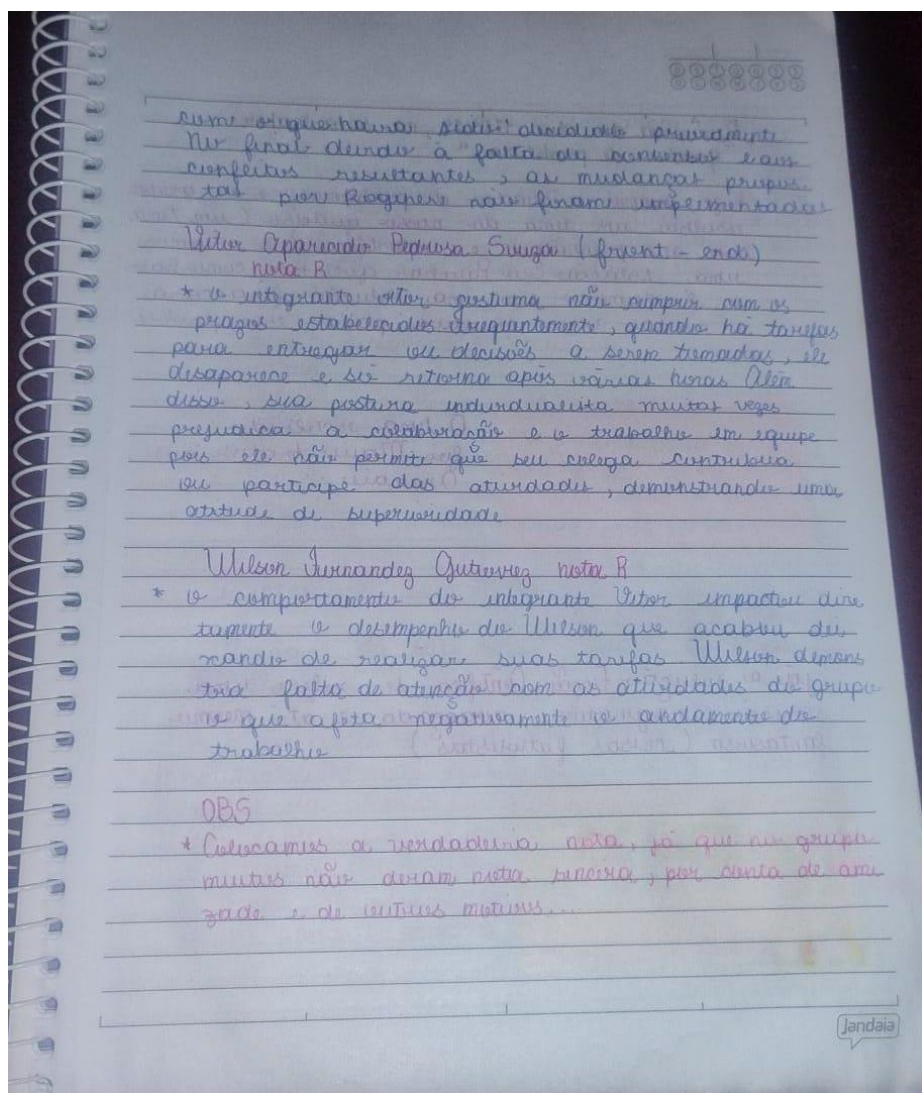 com o que havia sido decidido previamente
No final devido à falta de consenso e aos
confeitos resultantes, as mudanças propos
tas por Rogeres não foram impementadas
Vitor Aparecido Pedrosa Souza (front-end)
nota R
* o integrante vitor costuma não cumprir com os
prazos estabelecidos frequantemente, quando há tarefas
para entregar ou decisões a serem tomadas, ele
desaparece e só retorna após várias horas Além
disso, sua postura individualista muitas vezes
prejudica a colaboração e o trabalho em equipe
pois ele não permite que seu colega contribua
ou participe das atividades, demonstrando uma
atitude de superioridade
Wilson Fernandez Gutierrez nota R
* o comportamento do integrante Vitor impactou dire
tamente o desempenho do Wilson que acabou dei
xando de realizar suas tarefas Wilson demons
tra falta de atenção com as atividades do grupo
o que afeta negativamente o andamento do
trabalho
OBS
* Colocamos a verdadeira nota, já que no grupo
muitos não deram nota sincera, por conta de ami
zade e de outros motivos...
Jandaia